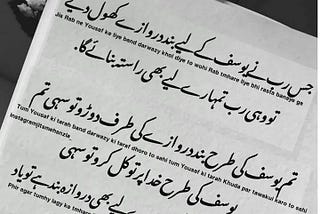 جس رب نے یوسف کے لیے بند دروازے کھول دیے
Jis Rab ne Yousaf ke liye band darwazy khol diye to wohi Rab tmhare liye bhi rasta banaye ga
تو وہی رب تمہارے لیے بھی راستہ بنائے گا.
تم یوسف کی طرح بند دروازے کی طرف دوڑو تو سہی تم
Tum Yousaf ki tarah band darwazy ki taraf dhoro to sahi tum Yousaf ki tarah Khuda par tawakul karo to sahi
Instagramjitsmahanzla
یوسف کی طرح خدا پر توکل کرو تو سہی
لیے بھی دروازہ بند ہے تو یاد
Phir agar tumhy lagy ke tmhare